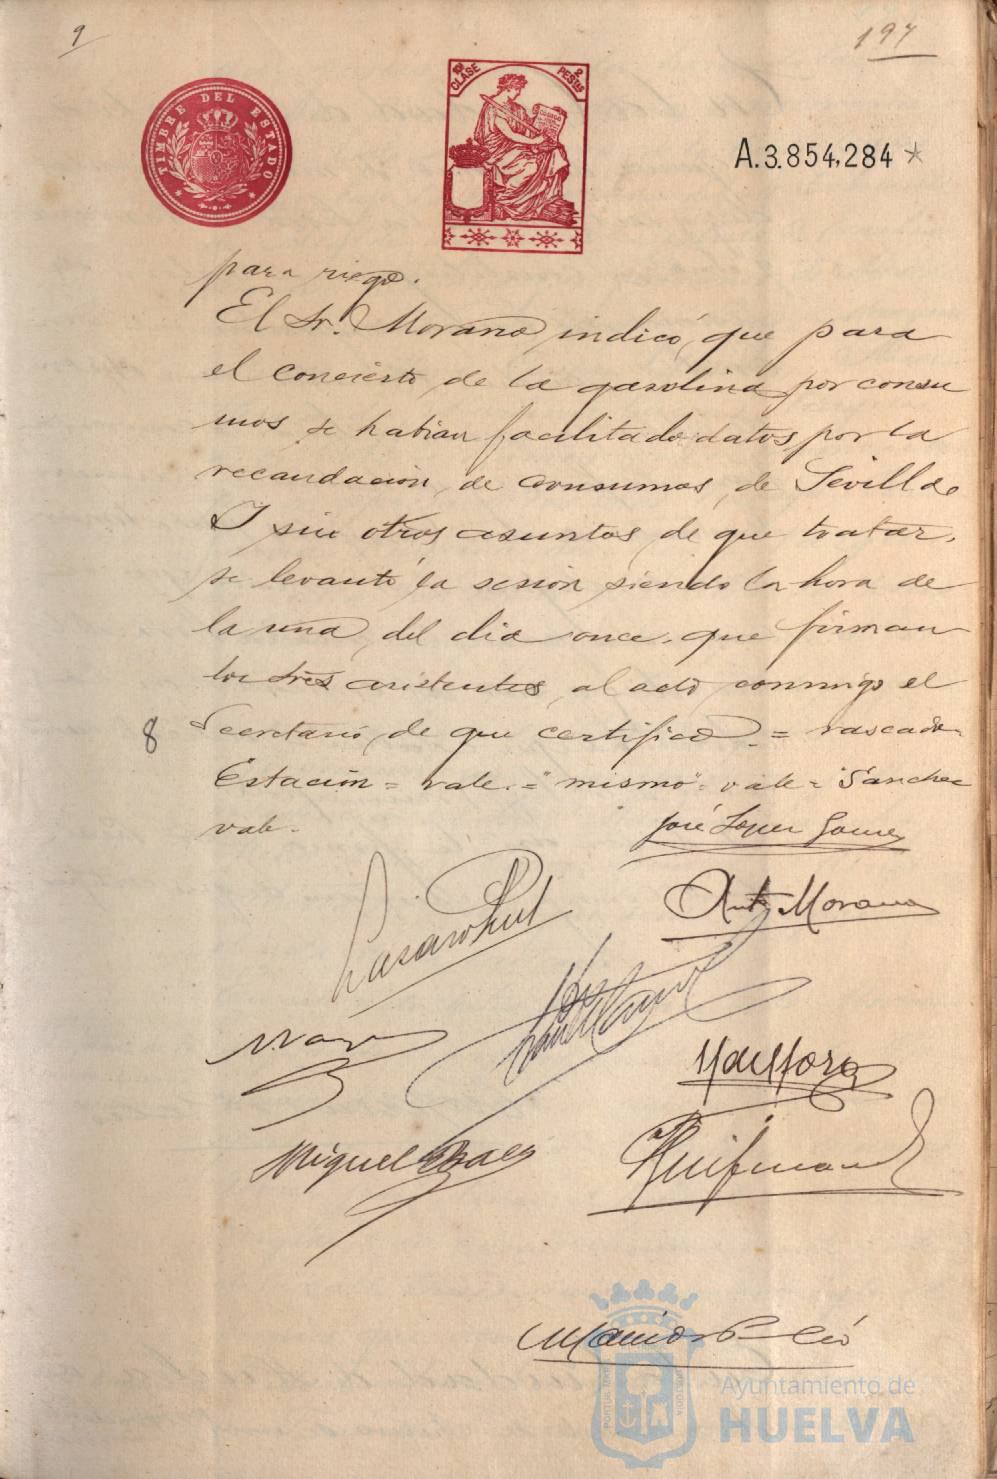 9
197
TIMBRE DEL ESTADO
CLASE
2 PESTAS
A.3.854,284 *
para riego.
El Sr. Morano indicó, que para
el concierto de la gasolina por consu
mos se habian facilitado datos por la
recaudación de consumos de Sevilla.
Y sin otros asuntos de que tratar,
se levantó la sesión siendo la hora de
la una del dia once, que firman
los Sres asistentes al acto conmigo el
8
Secretario, de que certifico = rascado =
Estación = vale. = "mismo" = vale = "Sanchez
vale.
José Lopez Gomez
Antº Morano
Miguel Baez
Ayuntamiento de
HUELVA